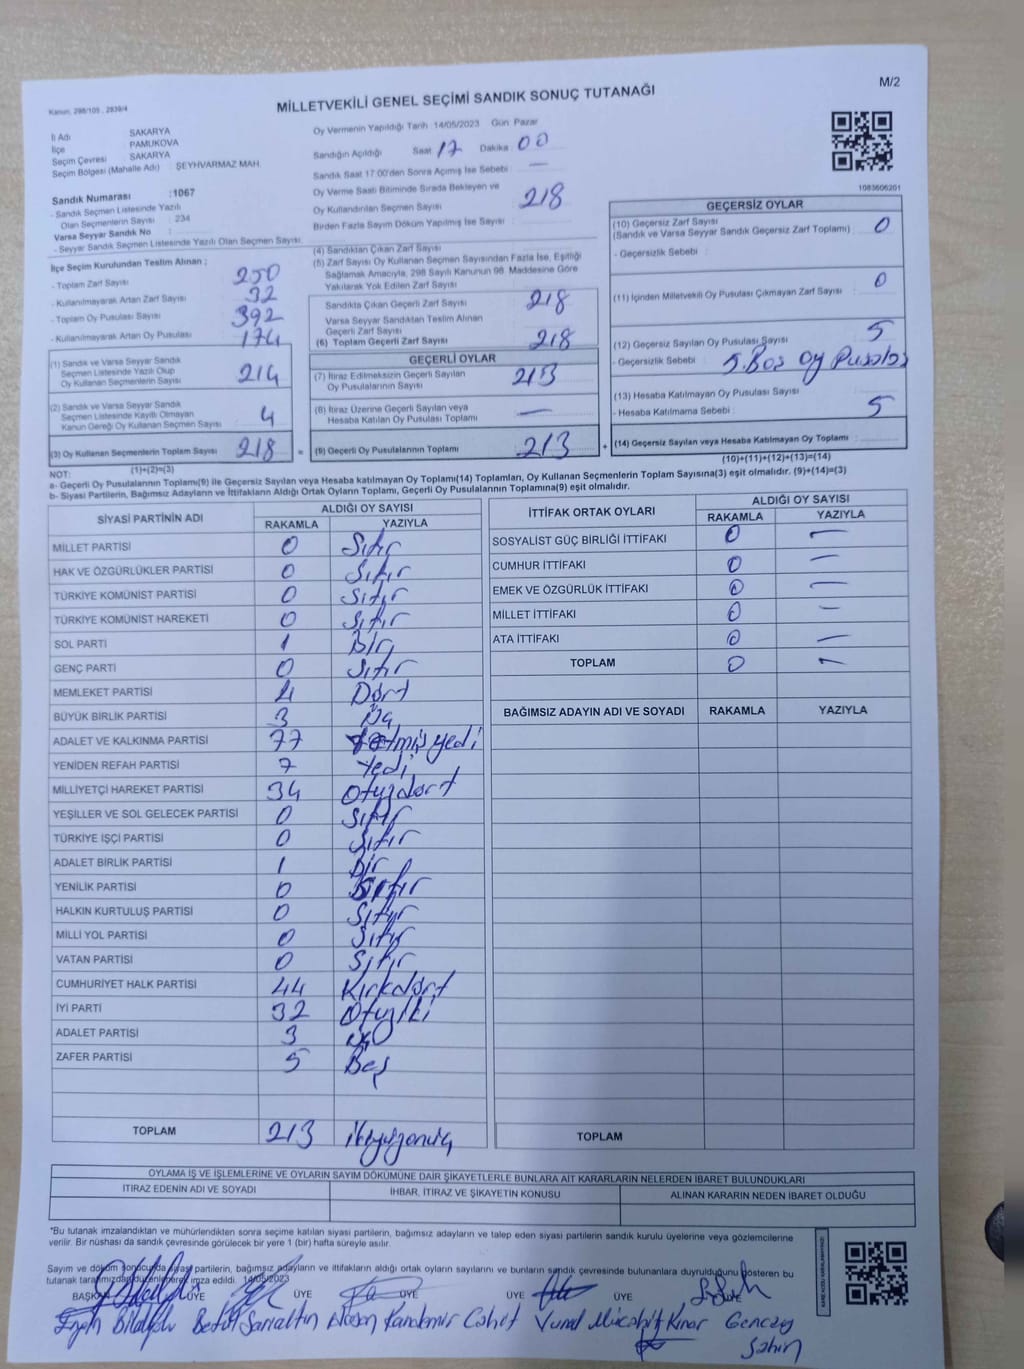 Kanun, 298/105 , 2839/4
MİLLETVEKİLİ GENEL SEÇİMİ SANDIK SONUÇ TUTANAĞI
M/2
İl Adı SAKARYA
İlçe PAMUKOVA
Seçim Çevresi SAKARYA
Seçim Bölgesi (Mahalle Adı) : ŞEYHVARMAZ MAH.
Oy Vermenin Yapıldığı Tarih 14/05/2023 Gün Pazar
Sandığın Açıldığı Saat 17 Dakika 00
Sandık Saat 17:00'den Sonra Açmış İse Sebebi —
Oy Verme Saati Bitiminde Sırada Bekleyen ve
Oy Kullandırılan Seçmen Sayısı 218
Birden Fazla Sayım Döküm Yapılmış İse Sayısı :
1083606201
Sandık Numarası : 1067
- Sandık Seçmen Listesinde Yazılı
Olan Seçmenlerin Sayısı : 234
Varsa Seyyar Sandık No :
- Seyyar Sandık Seçmen Listesinde Yazılı Olan Seçmen Sayısı:
İlçe Seçim Kurulundan Teslim Alınan ;
- Toplam Zarf Sayısı 250
- Kullanılmayarak Artan Zarf Sayısı 32
- Toplam Oy Pusulası Sayısı 392
- Kullanılmayarak Artan Oy Pusulası 174
(1) Sandık ve Varsa Seyyar Sandık
Seçmen Listesinde Yazılı Olup
Oy Kullanan Seçmenlerin Sayısı 214
(2) Sandık ve Varsa Seyyar Sandık
Seçmen Listesinde Kayıtlı Olmayan
Kanun Gereği Oy Kullanan Seçmen Sayısı 4
(3) Oy Kullanan Seçmenlerin Toplam Sayısı 218 =
(1)+(2)=(3)
(4) Sandıktan Çıkan Zarf Sayısı
(5) Zarf Sayısı Oy Kullanan Seçmen Sayısından Fazla İse, Eşitliği
Sağlamak Amacıyla, 298 Sayılı Kanunun 98. Maddesine Göre
Yakılarak Yok Edilen Zarf Sayısı
Sandıkta Çıkan Geçerli Zarf Sayısı 218
Varsa Seyyar Sandıktan Teslim Alınan
Geçerli Zarf Sayısı
(6) Toplam Geçerli Zarf Sayısı 218
GEÇERLİ OYLAR
(7) İtiraz Edilmeksizin Geçerli Sayılan
Oy Pusulalarının Sayısı 213
(8) İtiraz Üzerine Geçerli Sayılan veya
Hesaba Katılan Oy Pusulası Toplamı —
(9) Geçerli Oy Pusulalarının Toplamı 213 +
GEÇERSİZ OYLAR
(10) Geçersiz Zarf Sayısı
(Sandık ve Varsa Seyyar Sandık Geçersiz Zarf Toplamı) 0
- Geçersizlik Sebebi :
(11) İçinden Milletvekili Oy Pusulası Çıkmayan Zarf Sayısı 0
(12) Geçersiz Sayılan Oy Pusulası Sayısı 5
- Geçersizlik Sebebi 5. Boş oy Pusulası
(13) Hesaba Katılmayan Oy Pusulası Sayısı
- Hesaba Katılmama Sebebi : 5
(14) Geçersiz Sayılan veya Hesaba Katılmayan Oy Toplamı :
(10)+(11)+(12)+(13)=(14)
NOT:
a- Geçerli Oy Pusulalarının Toplamı(9) ile Geçersiz Sayılan veya Hesaba katılmayan Oy Toplamı(14) Toplamları, Oy Kullanan Seçmenlerin Toplam Sayısına(3) eşit olmalıdır. (9)+(14)=(3)
b- Siyasi Partilerin, Bağımsız Adayların ve İttifakların Aldığı Ortak Oyların Toplamı, Geçerli Oy Pusulalarının Toplamına(9) eşit olmalıdır.
SİYASİ PARTİNİN ADI ALDIĞI OY SAYISI
RAKAMLA YAZIYLA
MİLLET PARTİSİ 0 Sıfır
HAK VE ÖZGÜRLÜKLER PARTİSİ 0 Sıfır
TÜRKİYE KOMÜNİST PARTİSİ 0 Sıfır
TÜRKİYE KOMÜNİST HAREKETİ 0 Sıfır
SOL PARTİ 1 Bir
GENÇ PARTİ 0 Sıfır
MEMLEKET PARTİSİ 4 Dört
BÜYÜK BİRLİK PARTİSİ 3 Üç
ADALET VE KALKINMA PARTİSİ 77 Yetmişyedi
YENİDEN REFAH PARTİSİ 7 Yedi
MİLLİYETÇİ HAREKET PARTİSİ 34 Otuzdört
YEŞİLLER VE SOL GELECEK PARTİSİ 0 Sıfır
TÜRKİYE İŞÇİ PARTİSİ 0 Sıfır
ADALET BİRLİK PARTİSİ 1 Bir
YENİLİK PARTİSİ 0 Sıfır
HALKIN KURTULUŞ PARTİSİ 0 Sıfır
MİLLİ YOL PARTİSİ 0 Sıfır
VATAN PARTİSİ 0 Sıfır
CUMHURİYET HALK PARTİSİ 44 Kırkdört
İYİ PARTİ 32 Otuziki
ADALET PARTİSİ 3 Üç
ZAFER PARTİSİ 5 Beş
TOPLAM 213 ikiyüzonüç
İTTİFAK ORTAK OYLARI ALDIĞI OY SAYISI
RAKAMLA YAZIYLA
SOSYALİST GÜÇ BİRLİĞİ İTTİFAKI 0 —
CUMHUR İTTİFAKI 0 —
EMEK VE ÖZGÜRLÜK İTTİFAKI 0 —
MİLLET İTTİFAKI 0 —
ATA İTTİFAKI 0 —
TOPLAM 0 —
BAĞIMSIZ ADAYIN ADI VE SOYADI RAKAMLA YAZIYLA
TOPLAM
OYLAMA İŞ VE İŞLEMLERİNE VE OYLARIN SAYIM DÖKÜMÜNE DAİR ŞİKAYETLERLE BUNLARA AİT KARARLARIN NELERDEN İBARET BULUNDUKLARI
İTİRAZ EDENİN ADI VE SOYADI İHBAR, İTİRAZ VE ŞİKAYETİN KONUSU ALINAN KARARIN NEDEN İBARET OLDUĞU
*Bu tutanak imzalandıktan ve mühürlendikten sonra seçime katılan siyasi partilerin, bağımsız adayların ve talep eden siyasi partilerin sandık kurulu üyelerine veya gözlemcilerine
verilir. Bir nüshası da sandık çevresinde görülecek bir yere 1 (bir) hafta süreyle asılır.
Sayım ve döküm sonucunda siyasi partilerin, bağımsız adayların ve ittifakların aldığı ortak oyların sayılarını ve bunların sandık çevresinde bulunanlara duyrulduğunu gösteren bu
tutanak tarafımızdan düzenlenerek imza edildi. 14/05/2023
BAŞKAN ÜYE ÜYE ÜYE ÜYE ÜYE ÜYE
Betül Sarıaltın Hasan Kandemir Cahit Vural Mücahit Kınar Gencay
Şahin